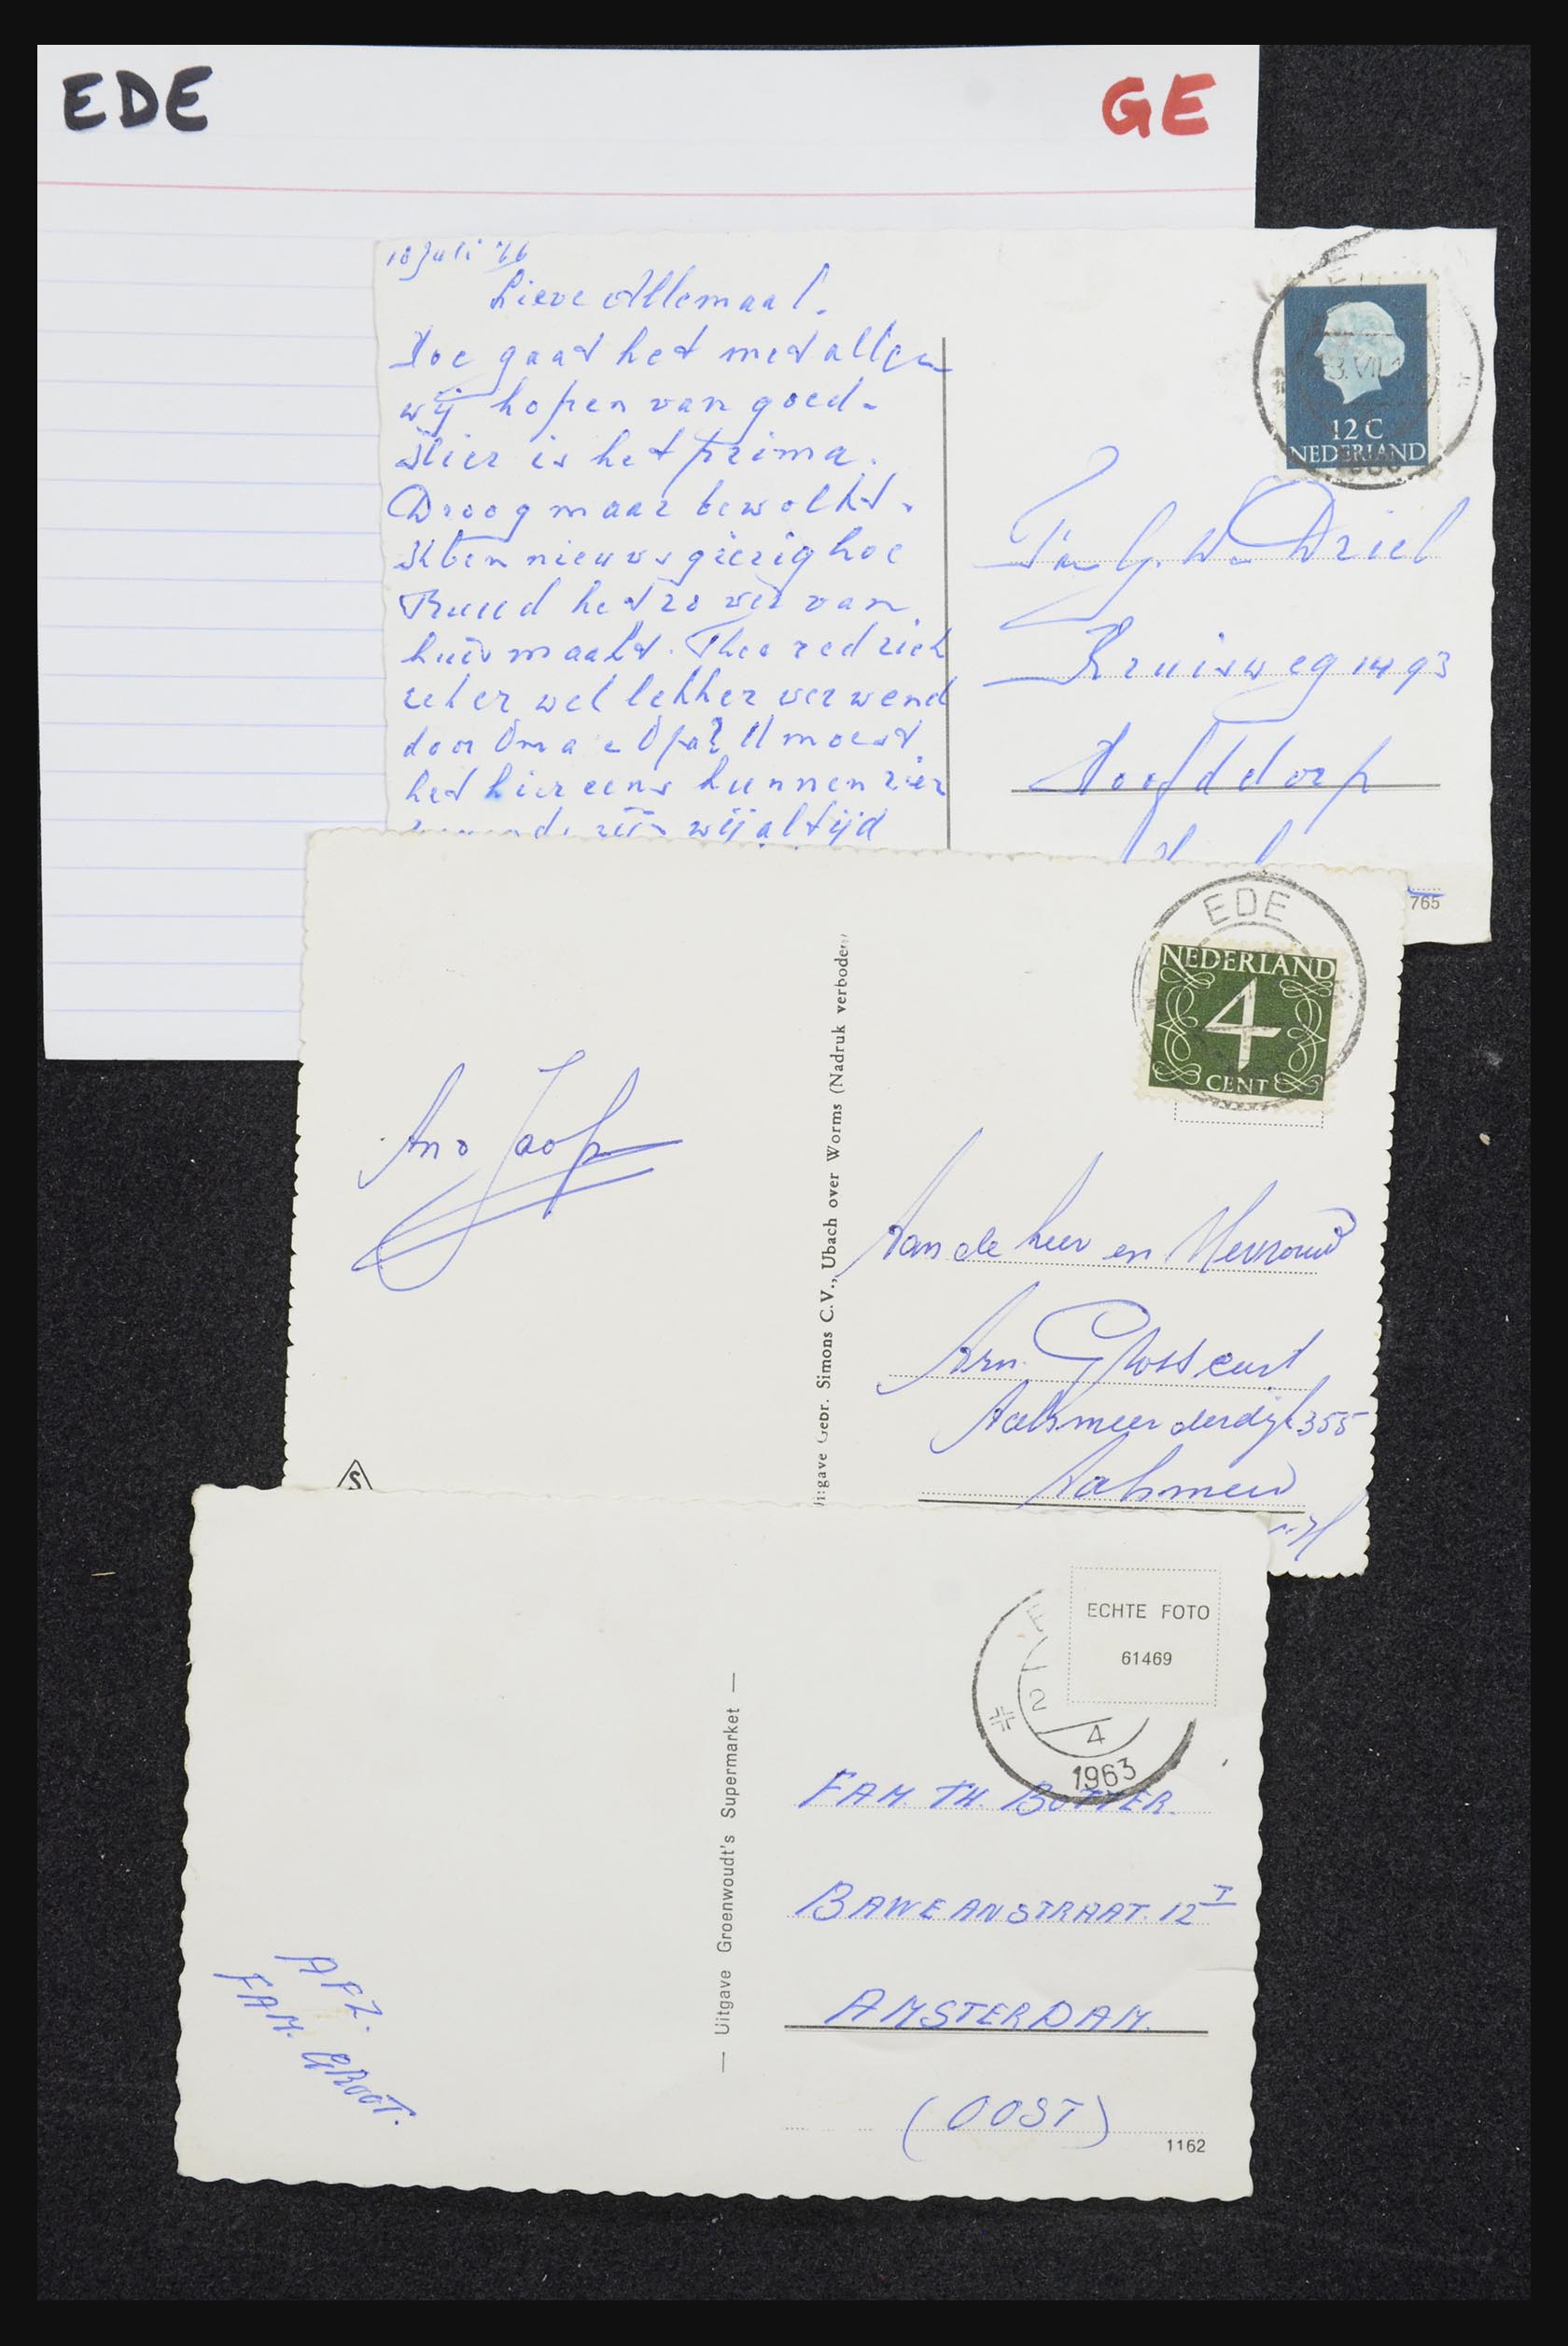 EDE
GE
18 Juli '66
Lieve Allemaal.
Hoe gaat het met allen
wij hopen van goed.
Hier is het prima.
Droog maar bewolkt.
Ik ben nieuwsgierig hoe
Ruud het zo ver van
huis maakt. Theo red zich
zeker wel lekker verwend
door Oma e Opa? U moest
het hier eens kunnen zien
wij altijd
12 C
NEDERLAND
Fam G. v. Driel
Kruisweg 1493
Hoofddorp
765
EDE
NEDERLAND
4
CENT
An Jaap
Uitgave Gebr. Simons C.V., Ubach over Worms (Nadruk verboden)
Aan de heer en Mevrouw
Arn.
Aalsmeerderdijk 355
Aalsmeer
S
ECHTE FOTO
61469
2
4
1963
— Uitgave Groenwoudt's Supermarket —
FAM. TH. BOTTER.
BAWEANSTRAAT. 12 I
AMSTERDAM.
(OOST)
AFZ.
FAM. GROOT.
1162